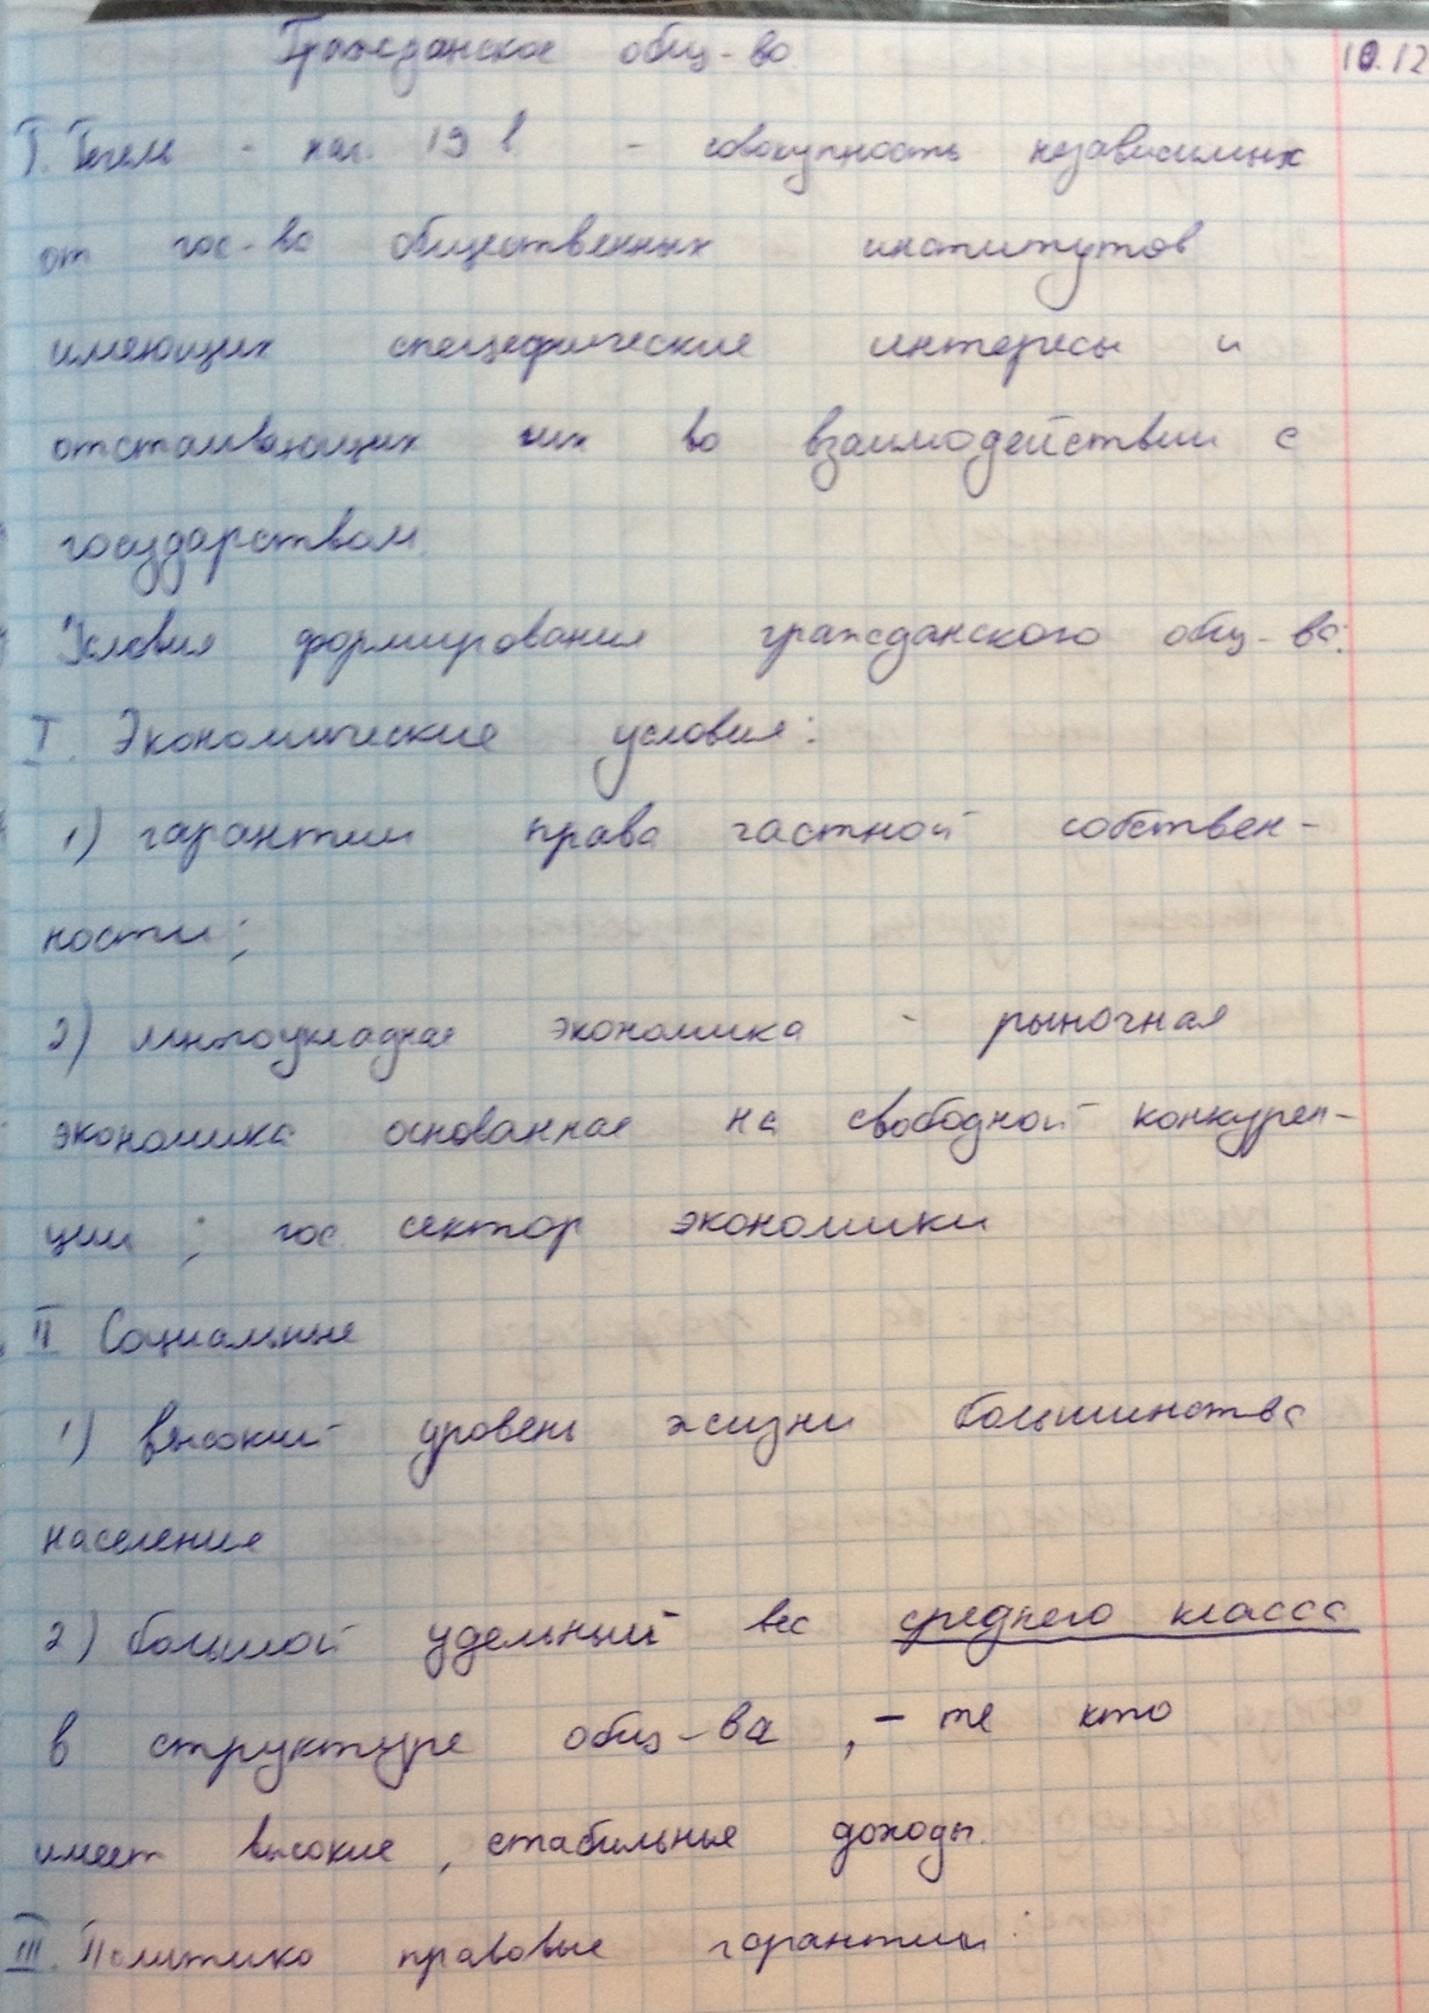 Гражданское общ-во 10.12
Г. Гегель - нач. 19 в - совокупность независимых
от гос-ва общественных институтов
имеющих спецефические интересы и
отстаивающих их во взаимодействии с
государством.
Условия формирования гражданского общ-ва:
I. Экономические условия:
1) гарантии права частной собствен-
ности;
2) многоукладная экономика - рыночная
экономика основанная на свободной конкурен-
ции ; гос. сектор экономики
II Социальные
1) высокий уровень жизни большинства
населения
2) большой удельный вес среднего класса
в структуре общ-ва , - те кто
имеет высокие , стабильные доходы.
III. Политико правовые гарантии: